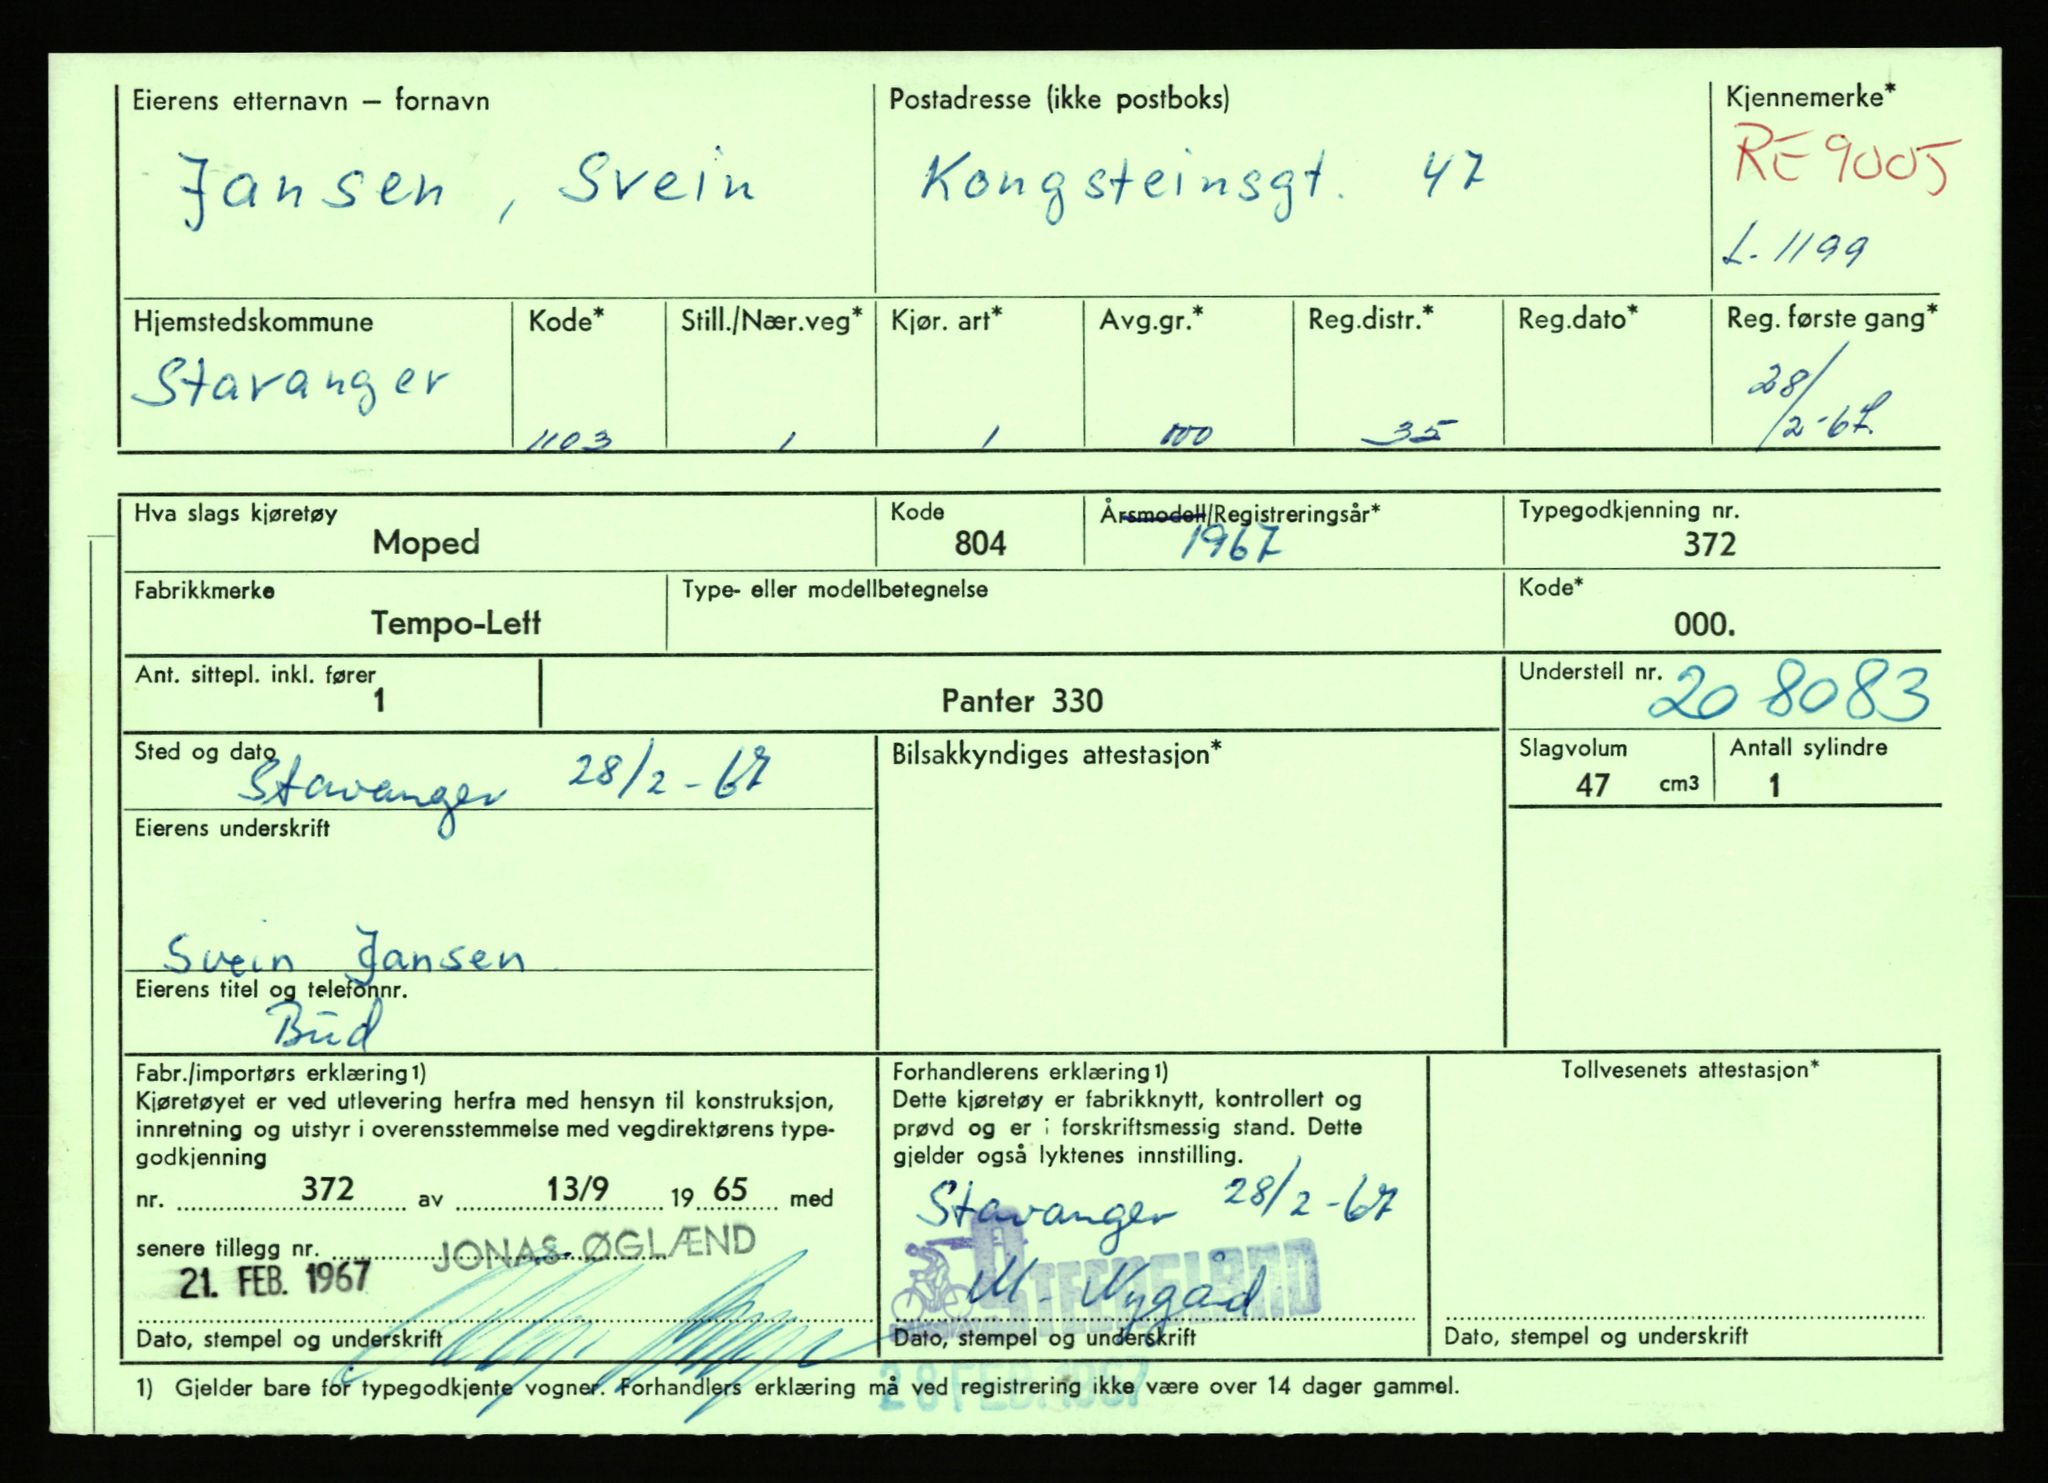 Eierens etternavn – fornavn
Jansen, Svein
Postadresse (ikke postboks)
Kongsteinsgt. 47
Kjennemerke*
RE 9005
L-1199
Hjemstedskommune
Stavanger
Kode*
1103
Still./Nær.veg*
1
Kjør. art*
1
Avg.gr.*
000
Reg.distr.*
35
Reg.dato*
Reg. første gang*
28/2-67.
Hva slags kjøretøy
Moped
Kode
804
Årsmodell/Registreringsår*
1967
Typegodkjenning nr.
372
Fabrikkmerke
Tempo-Lett
Type- eller modellbetegnelse
Kode*
000.
Ant. sittepl. inkl. fører
1
Panter 330
Understell nr.
208083
Sted og dato
Stavanger 28/2-67
Bilsakkyndiges attestasjon*
Slagvolum
47 cm3
Antall sylindre
1
Eierens underskrift
Svein Jansen
Eierens titel og telefonnr.
Bud
Fabr./importørs erklæring1)
Kjøretøyet er ved utlevering herfra med hensyn til konstruksjon,
innretning og utstyr i overensstemmelse med vegdirektørens type-
godkjenning
nr. 372 av 13/9 19 65 med
senere tillegg nr.
JONAS ØGLÆND
21. FEB. 1967
Dato, stempel og underskrift
Forhandlerens erklæring1)
Dette kjøretøy er fabrikknytt, kontrollert og
prøvd og er i forskriftsmessig stand. Dette
gjelder også lyktenes innstilling.
Stavanger 28/2-67
M. Nygård
Dato, stempel og underskrift
28 FEB. 1967
Tollvesenets attestasjon*
Dato, stempel og underskrift
1) Gjelder bare for typegodkjente vogner. Forhandlers erklæring må ved registrering ikke være over 14 dager gammel.